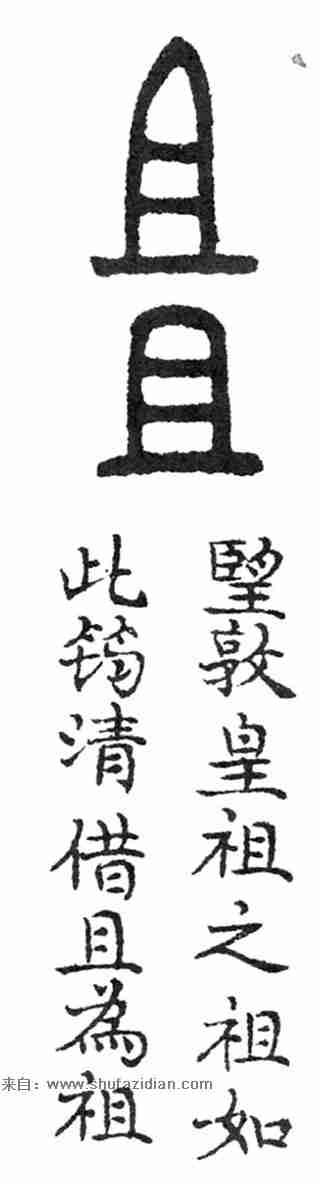 且
且
朢敦皇祖之祖如
此筠清借且為祖
来自：www.shufazidian.com